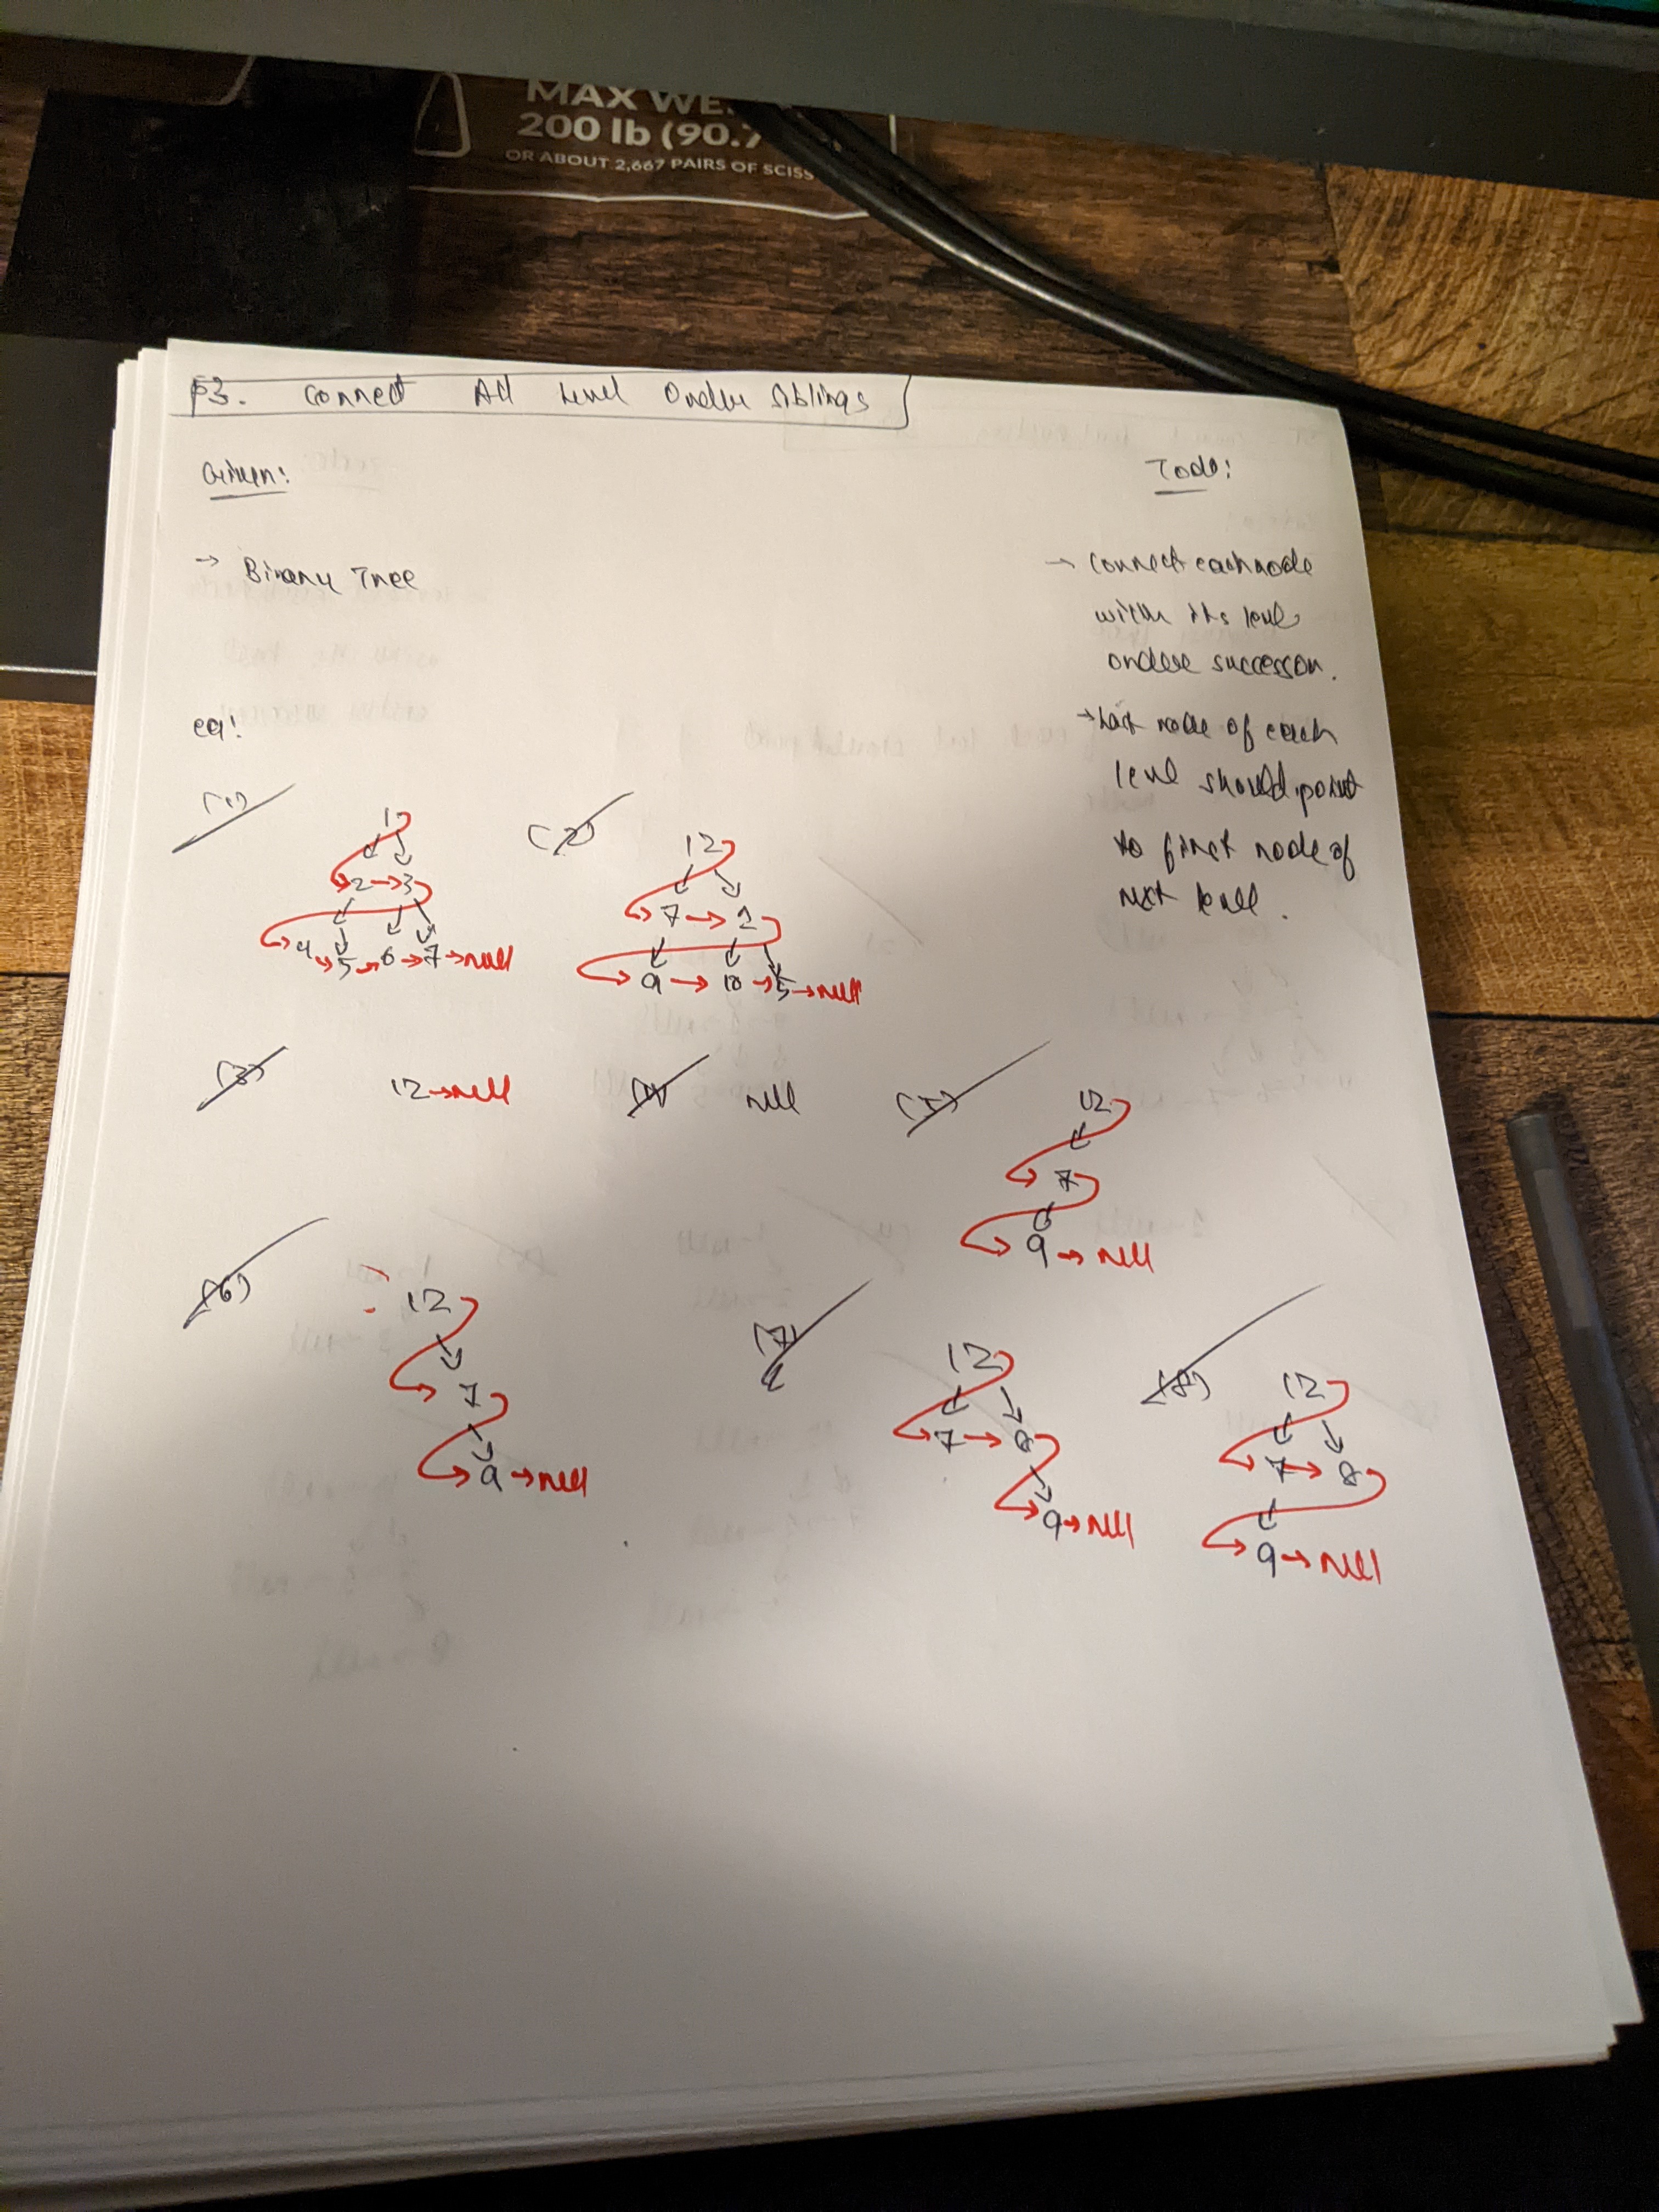 MAX WE
200 lb (90.7
OR ABOUT 2,667 PAIRS OF SCISS
P3. Connect All Level Order Siblings
Given:
Todo:
→ Binary Tree
→ Connect each node
with its level
order successor.
→ Last node of each
level should point
to first node of
next level.
eg:
(1)
1
2 → 3
4 → 5 → 6 → 7 → null
(2)
12
7 → 1
9 → 10 → 5 → null
(3) 12 → null
(4) null
(5)
12
7
9 → null
(6)
12
7
9 → null
(7)
12
7 → 8
9 → null
(8)
12
7 → 8
9 → null